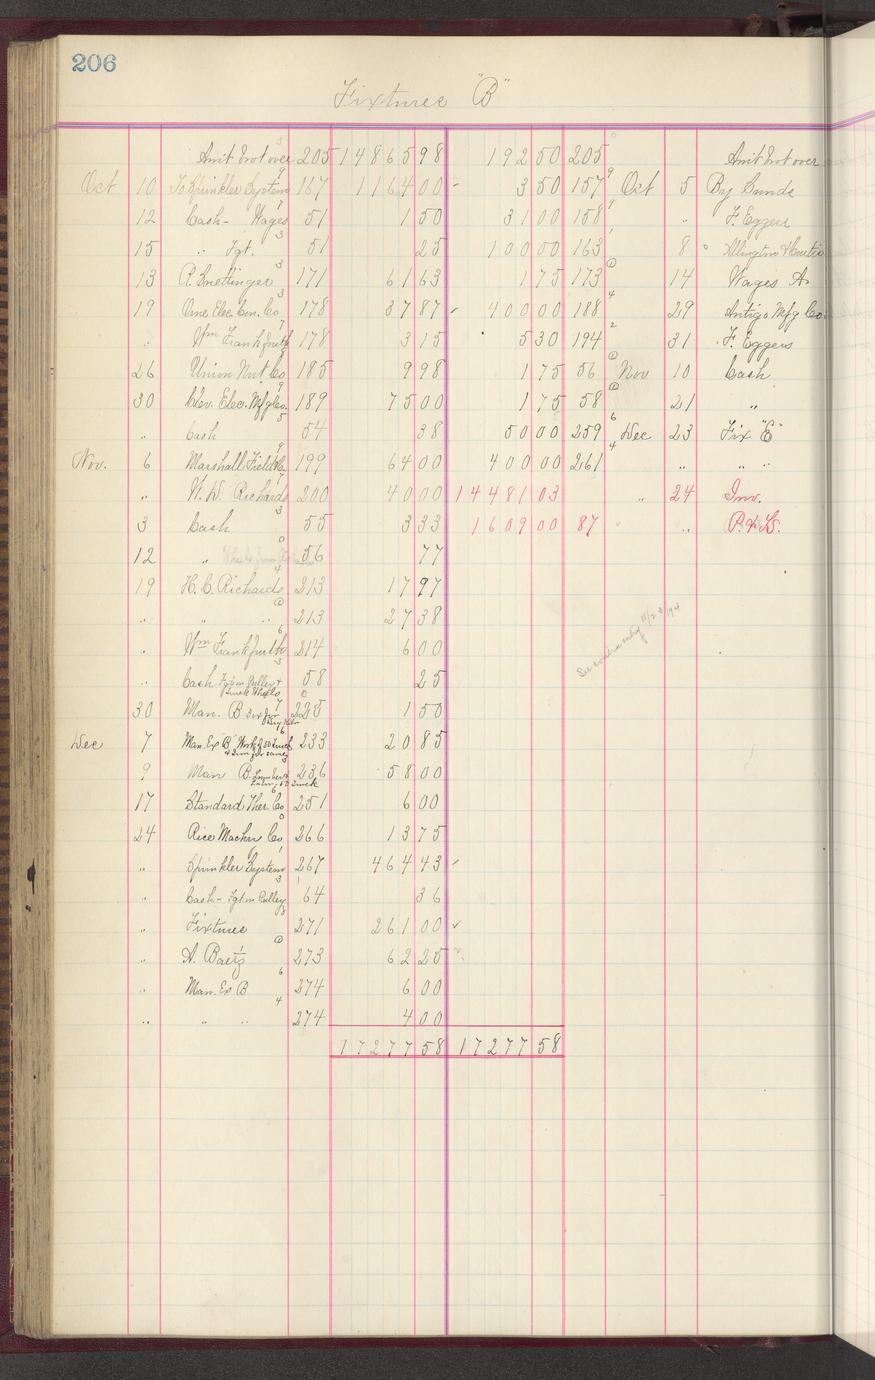 206
Fixtures "B"
Amt brot over 205 14865 98 192 50 205 Amt brot over
Oct 10 To Sprinkler System 167 1164 00 3 50 157 Oct 5 By Sunds
12 Cash - Wages 51 1 50 31 00 158 " F. Eggers
15 " Fgt. 51 25 100 00 163 8
13 171 61 63 1 75 173 14 Wages A
19 Elec. Con. Co 178 37 87 400 00 188 29 Antigo Mfg Co
" Wm Frankfurth 178 3 15 5 30 194 31 F. Eggers
26 Union Nut Co 185 9 98 1 75 56 Nov 10 Cash
30 Clev. Elec. Mfg Co. 189 75 00 1 75 58 21 "
" Cash 54 38 50 00 259 Dec 23 Fix "E"
Nov. 6 Marshall Field & Co 199 64 00 400 00 261 " " "
" W. W. Richards 200 40 00 14481 03 " 24 Inv.
3 Cash 55 3 33 1609 00 87 " P. & L.
12 " 56 77
19 H. C. Richards 213 17 97
" " " 213 27 38
" Wm Frankfurth 214 6 00
See entry 11/23/94
" Cash Fgt on Pulley & Truck Wheels 58 25
30 Man. B 225 1 50
Dec 7 Man. Ex "B" Work 233 20 85
9 Man B. Lumber 236 58 00
17 Standard Ther. Co 251 6 00
24 Rice Machn Co 266 13 75
" Sprinkler System 267 464 43
" Cash - Fgt on Pulley 64 36
" Fixtures 271 261 00
" A. Baetz 273 62 25
" Man. Ex B 274 6 00
" " " 274 4 00
17277 58 17277 58